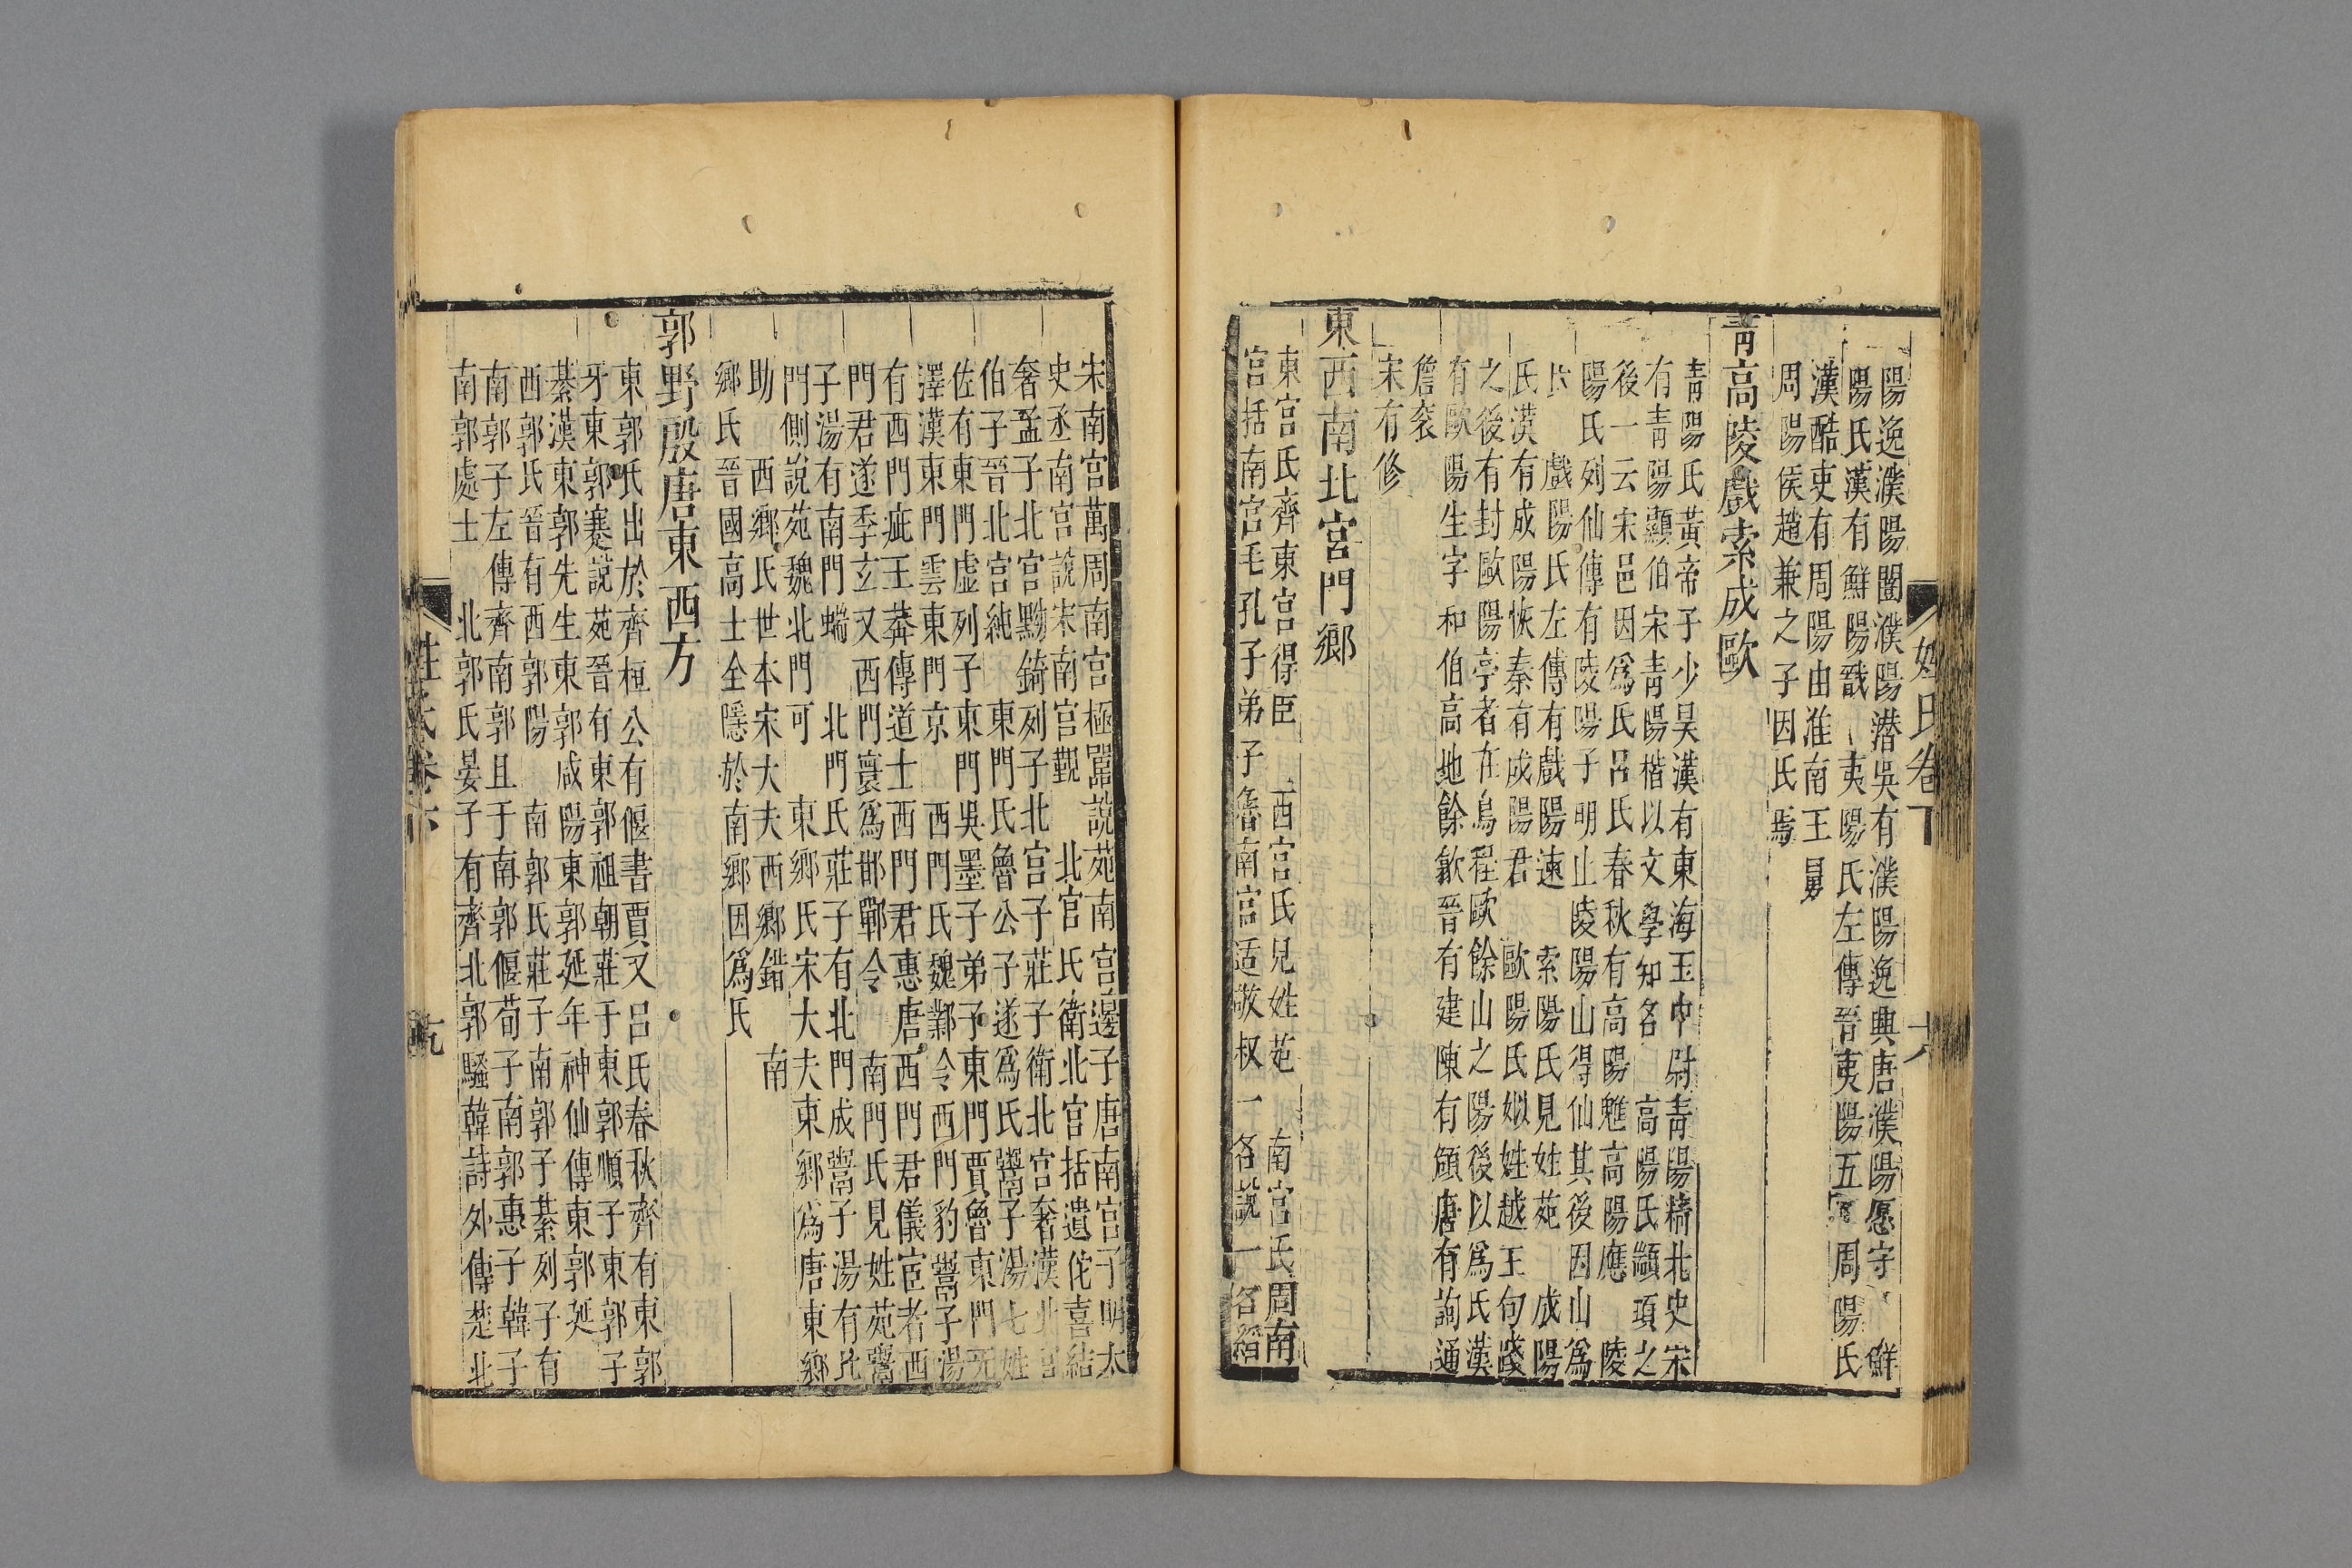 姓氏卷下
六
陽逸濮陽闓濮陽潜吳有濮陽逸興唐濮陽愿守 鮮
陽氏漢有鮮陽戩 夷陽氏左傳晉夷陽五 周陽氏
漢酷吏有周陽由淮南王舅
周陽侯趙兼之子因氏焉
青高陵戲索成歐
青陽氏黃帝子少昊漢有東海王中尉青陽精北史宋
有青陽顯伯宋青陽楷以文學知名 高陽氏顓頊之
後一云宋邑因爲氏呂氏春秋有高陽魋高陽應 陵
陽氏列仙傳有陵陽子明止陵陽山得仙其後因山爲
氏 戲陽氏左傳有戲陽速 索陽氏見姓苑 成陽
氏漢有成陽恢秦有成陽君 歐陽氏姒姓越王句踐
之後有封歐陽亭者在烏程歐餘山之陽後以爲氏漢
有歐陽生字和伯高地餘歙晉有建陳有頠唐有詢通
詹袞
宋有修
東西南北宮門鄉
東宮氏齊東宮得臣 西宮氏見姓苑 南宮氏周南
宮括南宮毛孔子弟子魯南宮适敬叔一名說一名縚
宋南宮萬周南宮極嚚說苑南宮邊子唐南宮子明太
史丞南宮說宋南宮覲 北宮氏衛北宮括遺佗喜結
奢孟子北宮黝錡列子北宮子莊子衛北宮奢漢北宮
伯子晉北宮純 東門氏魯公子遂爲氏鬻子湯七姓
佐有東門虛列子東門吳墨子弟子東門賈魯東門旡
澤漢東門雲東門京 西門氏魏鄴令西門豹鬻子湯
有西門疵王莽傳道士西門君惠唐西門君儀宦者西
門君遂季玄又西門寰爲邯鄲令 南門氏見姓苑鬻
子湯有南門蠕 北門氏莊子有北門成鬻子湯有北
門側說苑魏北門可 東鄉氏宋大夫東鄉爲唐東鄉
助 西鄉氏世本宋大夫西鄉錯 南
鄉氏晉國高士全隱於南鄉因爲氏
郭野殷唐東西方
東郭氏出於齊桓公有偃書賈又呂氏春秋齊有東郭
牙東郭蹇說苑晉有東郭祖朝莊于東郭順子東郭子
綦漢東郭先生東郭咸陽東郭延年神仙傳東郭延
西郭氏晉有西郭陽 南郭氏莊子南郭子綦列子有
南郭子左傳齊南郭且于南郭偃荀子南郭惠子韓子
南郭處士 北郭氏晏子有齊北郭騷韓詩外傳楚北